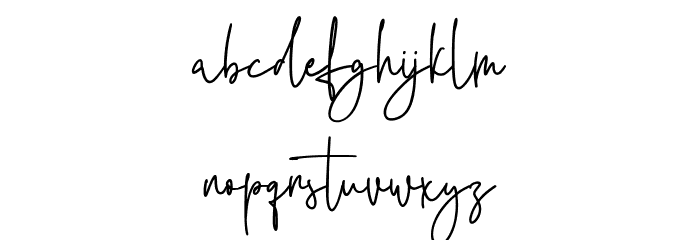 abcdefghijklm
nopqrstuvwxyz